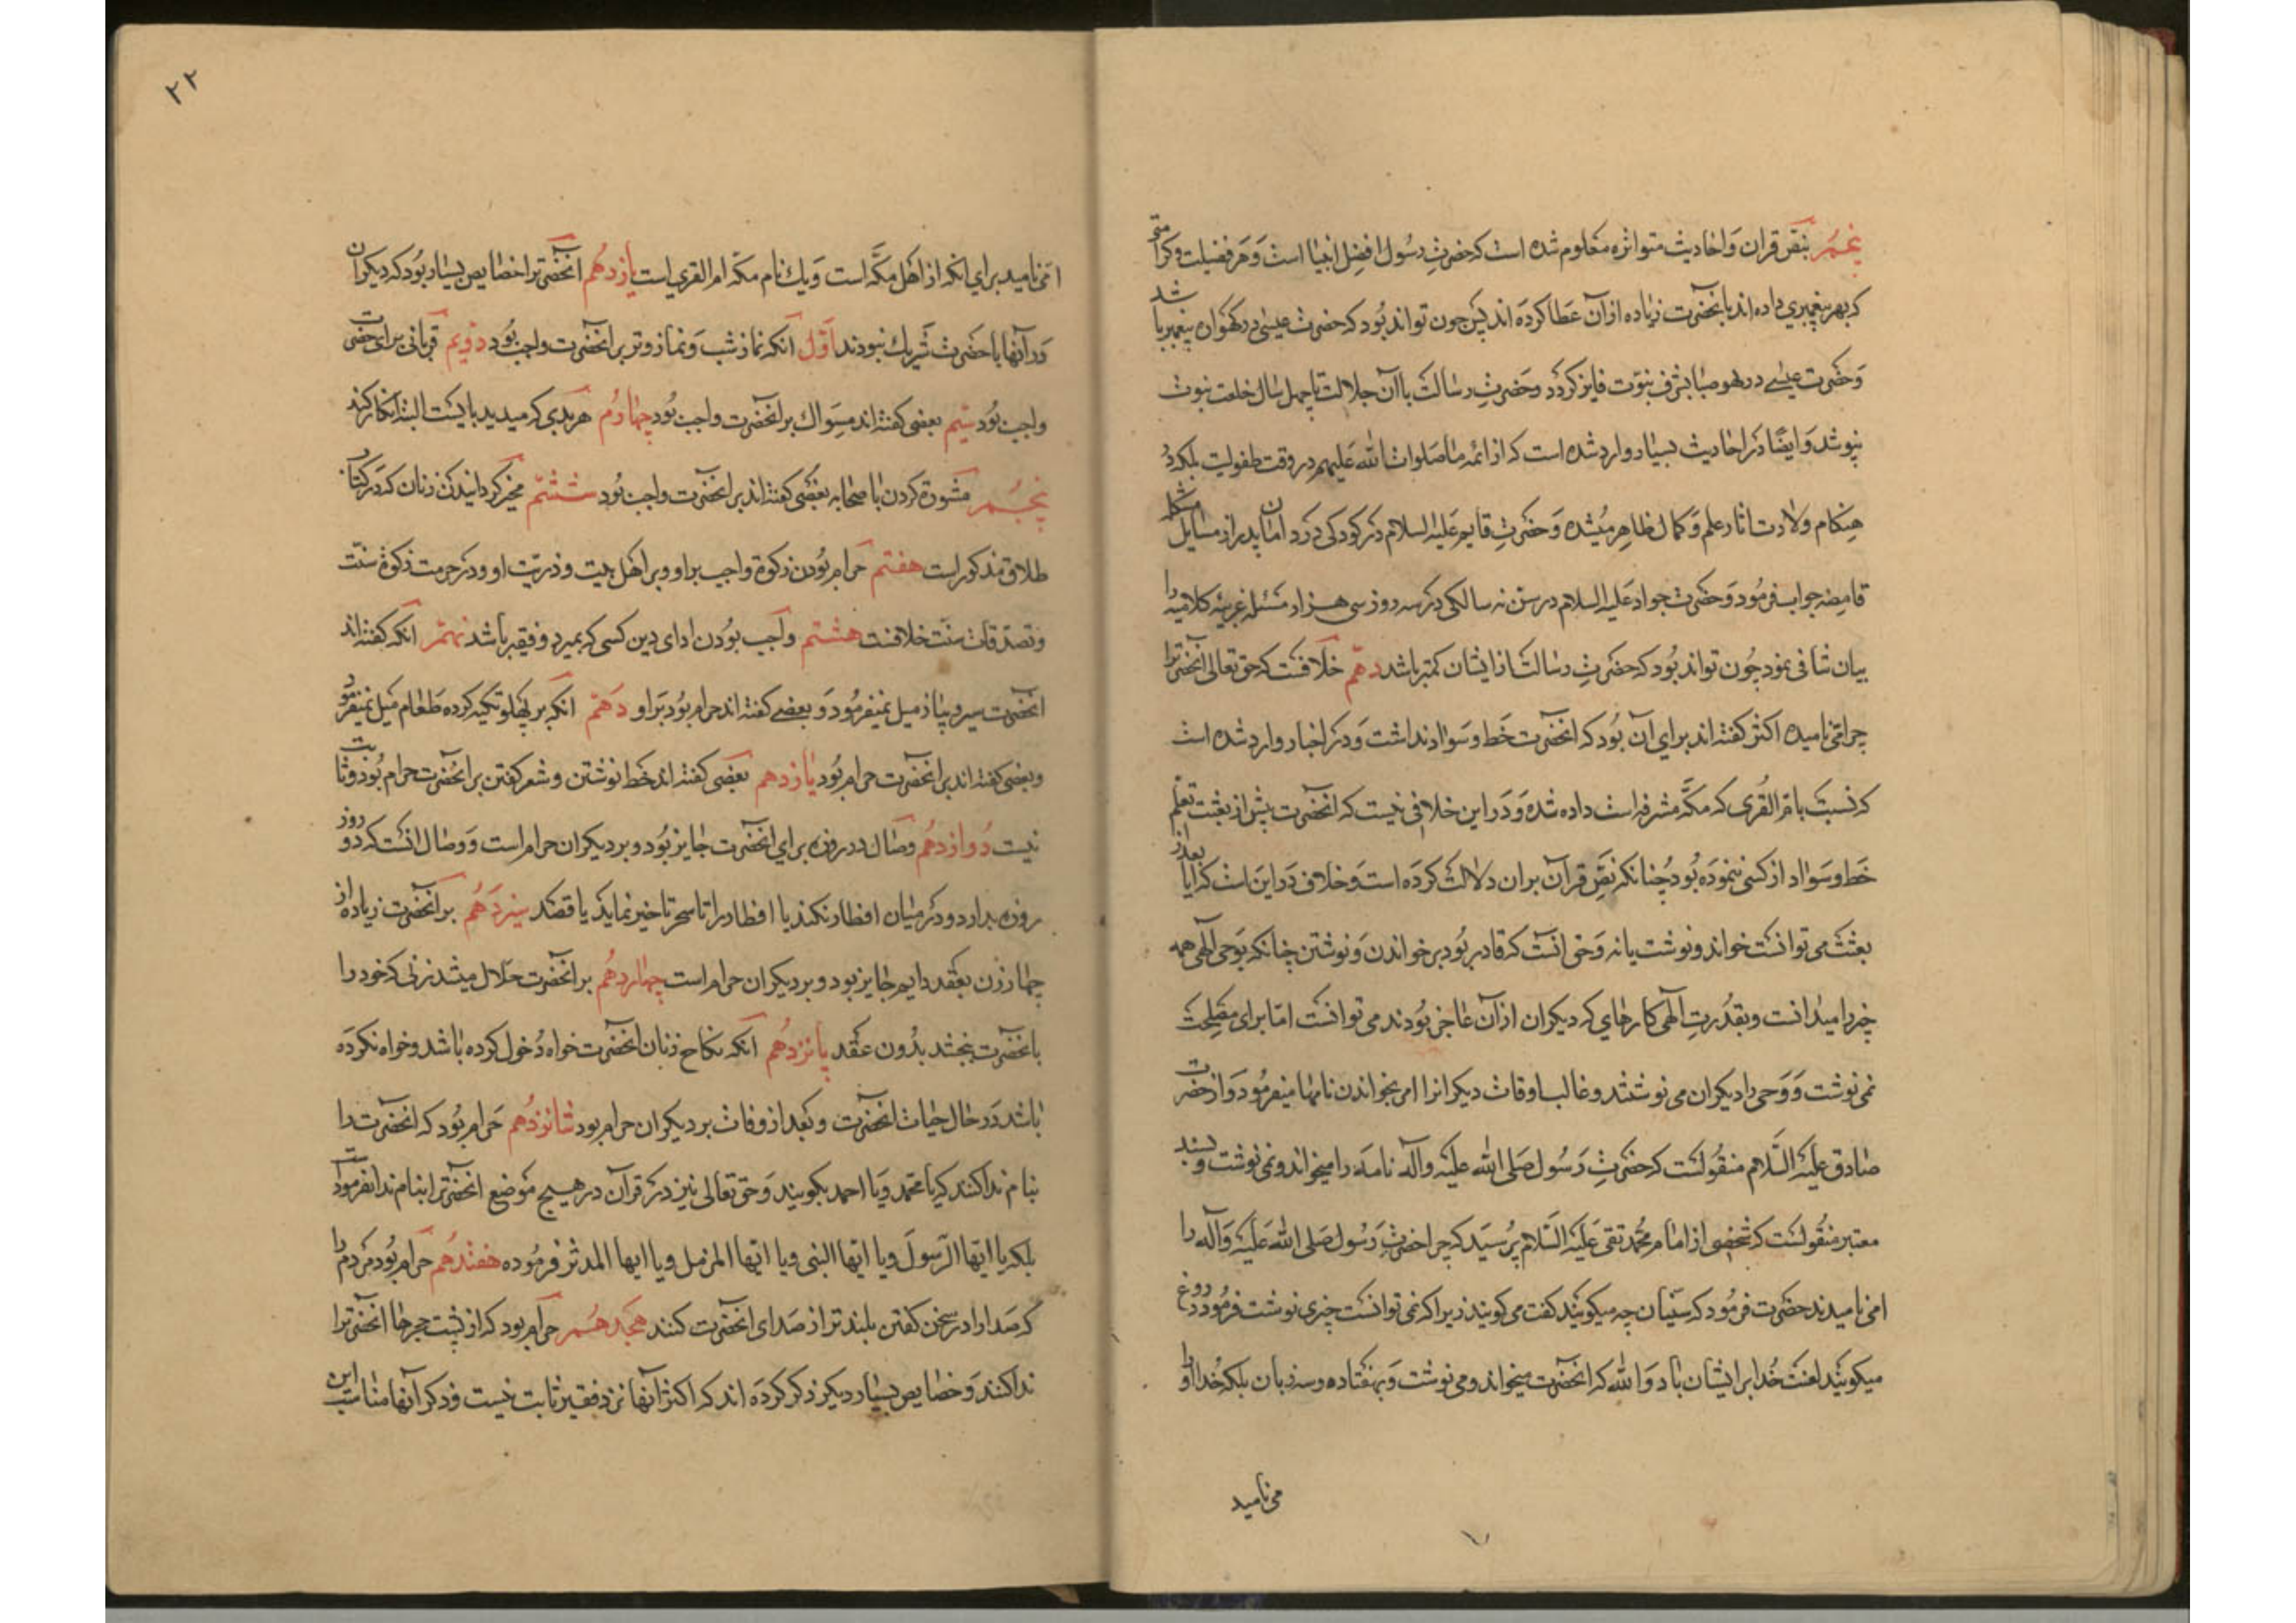 پنجم بنص قران و احادیث متواتره معلوم شده است که حضرت رسول افضل انبیا است و هر فضیلت و کرامتی
که بهر پیغمبری داده اند بانحضرت زیاده از آن عطا کرده اند پس چون تواند بود که حضرت عیسی در کهواره پیغمبر باشد
و حضرت عیسی در بصبا بشرف نبوت فایز کردد و حضرت رسالت با آن جلالت تا چهل سال خلعت نبوت
نپوشد و ایضا در احادیث بسیار وارد شده است که از ائمه ما صلوات الله علیهم در وقت طفولیت بلکه در
هنکام ولادت اثار علم و کمال ظاهر میشده و حضرت قایم علیه السلام در کودکی در دامان پدر از مسایل مشکل
غامضه جواب فرمود و حضرت جواد علیه السلام در سن نه سالکی در سه روز سی هزار مسئله غریبه کلامیه را
بیان شافی نمود چون تواند بود که حضرت رسالت از ایشان کمتر باشد دهم خلافست که حق تعالی انحضرترا
چرا امی نامیده اکثر کفته اند برای آن بود که انحضرت خط و سواد نداشت و در اخبار وارد شده است
که نسبت بام القری که مکه مشرفه است داده شده و در این خلافی نیست که انحضرت پیش از بعثت تعلم
خط و سواد از کسی ننموده بود چنانکه نص قرآن بران دلالت کرده است و خلاف در این است که ایا بعد از
بعثت می توانست خواند و نوشت یا نه و حق انست که قادر بود بر خواندن و نوشتن چنانکه بوحی الهی همه
چیز را میدانست و بقدرت الهی کارهای که دیکران از آن عاجز بودند می توانست اما برای مصلحت
نمی نوشت و وحی را دیکران می نوشتند و غالب اوقات دیکرانرا امر بخواندن نامها میفرمود و از حضرت
صادق علیه السلام منقولست که حضرت رسول صلی الله علیه و آله نامه را میخواند و نمی نوشت و بسند
معتبر منقولست که شخصی از امام محمد تقی علیه السلام پرسید که چرا حضرت رسول صلی الله علیه و آله را
امی نامیدند حضرت فرمود که سنیان چه میکویند کفت می کویند زیرا که نمی توانست چیزی نوشت فرمود دروغ
میکویند لعنت خدا بر ایشان باد والله که انحضرت میخواند و می نوشت و بهفتاد و سه زبان بلکه خدا او را
می نامید
۲۲
امی نامید برای انکه از اهل مکه است و یك نام مکه ام القری است یازدهم انحضرترا خصایص بسیار بود که دیکران
در آنها با حضرت شریك نبودند اول آنکه نماز شب و نماز وتر بر انحضرت واجب بود دویم قربانی برای حضرت
واجب بود سیم بعضی کفته اند مسواك بر انحضرت واجب بود چهارم هر بدی که میدید بایست البته انکار کند
پنجم مشورة کردن با صحابه بعضی کفته اند بر انحضرت واجب بود ششم مخیر کردانیدن زنان که در کتاب
طلاق مذکور است هفتم حرام بودن زکوة واجب بر او و بر اهل بیت و ذریت او و در حرمت زکوة سنت
و تصدقات سنت خلافست هشتم واجب بودن ادای دین کسی که بمیرد و فقیر باشد نهم انکه کفته اند
انحضرت سیر و پیاز میل نمیفرمود و بعضی کفته اند حرام بود بر او دهم انکه بر پهلو تکیه کرده طعام میل نمیفرمود
و بعضی کفته اند بر انحضرت حرام بود یازدهم بعضی کفته اند خط نوشتن و شعر کفتن بر انحضرت حرام بود و ثابت
نیست دوازدهم وصال در روزه برای انحضرت جایز بود و بر دیکران حرام است و وصال انست که دو روز
روزه بدارد و در میان افطار نکند یا افطار را تا سحر تاخیر نماید با قصد سیزدهم بر انحضرت زیاده از
چهار زن بعقد دایم جایز بود و بر دیکران حرام است چهاردهم بر انحضرت حلال میشد زنی که خود را
بانحضرت بخشد بدون عقد پانزدهم انکه نکاح زنان انحضرت خواه دخول کرده باشد و خواه نکرده
باشد در حال حیات انحضرت و بعد از وفات بر دیکران حرام بود شانزدهم حرام بود که انحضرت را
بنام ندا کنند که یا محمد و یا احمد بکویند و حق تعالی نیز در قرآن در هیچ موضع انحضرترا بنام ندا نفرمودست
بلکه یا ایها الرسول و یا ایها النبی و یا ایها المزمل و یا ایها المدثر فرموده هفتدهم حرام بود مردم را
که صدا را در سخن کفتن بلندتر از صدای انحضرت کنند هجدهم حرام بود که از پشت حجرها انحضرترا
ندا کنند و خصایص بسیار دیکر ذکر کرده اند که اکثر آنها نزد فقیر ثابت نیست و ذکر آنها مناسب این